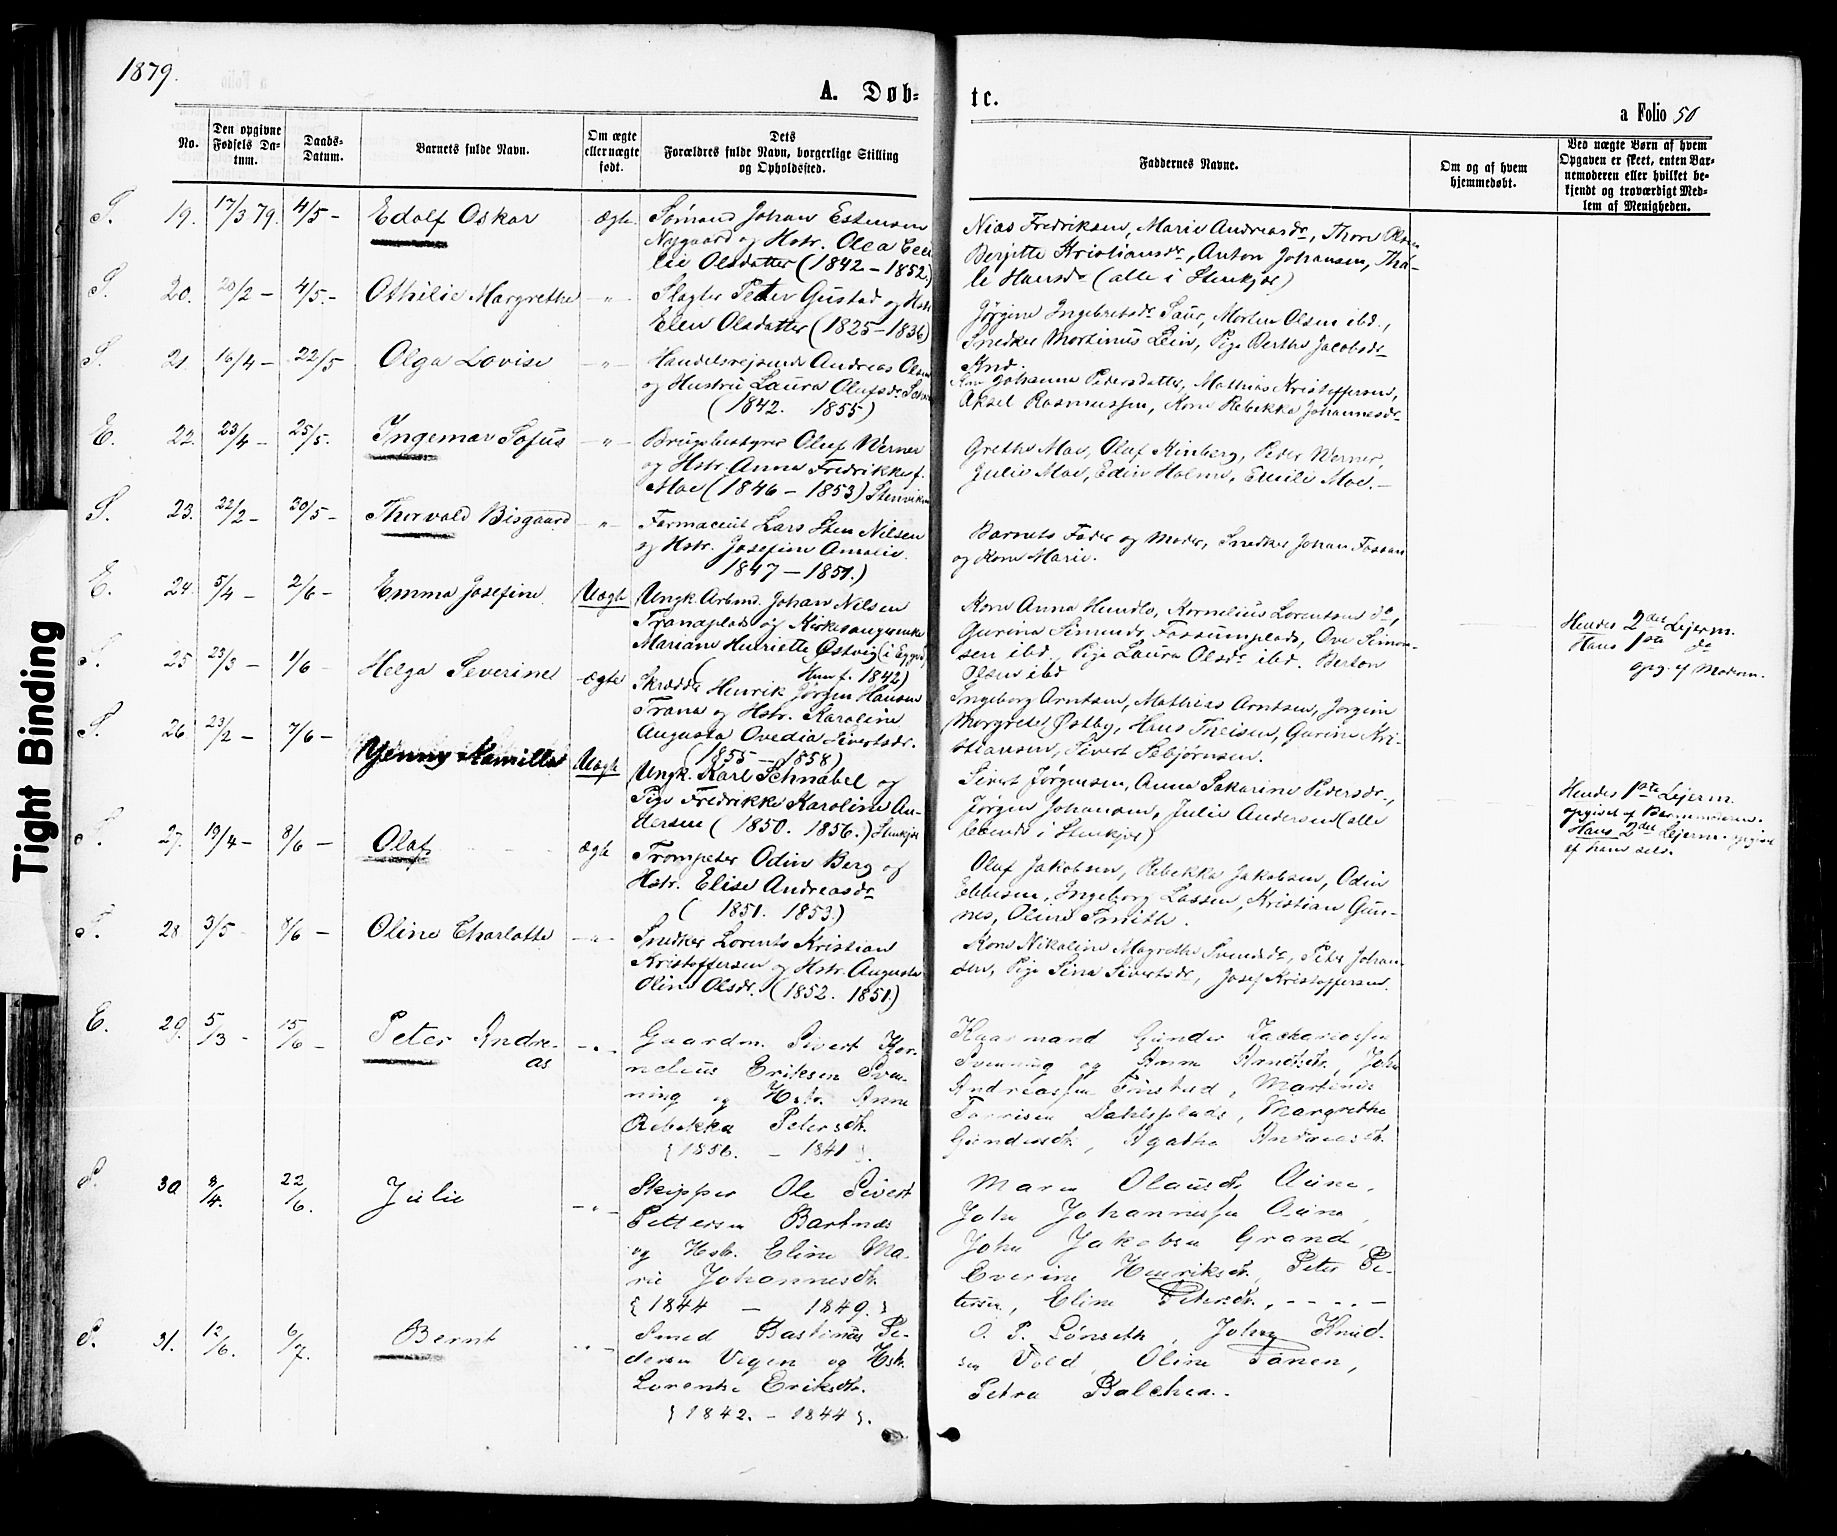 1879.
A. Døb-
te.
a Folio 50
No.
Den opgivne Fødsels Da-tum.
Daabs-Datum.
Barnets fulde Navn.
Om ægte eller uægte født.
Dets Forældres fulde Navn, borgerlige Stilling og Opholdssted.
Faddernes Navne.
Om og af hvem hjemmedøbt.
Ved uægte Børn af hvem Opgaven er skeet, enten Bar-nemoderen eller hvilket be-kjendt og troværdigt Med-lem af Menigheden.
S. 19. 17/3 79. 4/5 - Edolf Oskar ægte
Sømand Johan Estensen
Nygaard og Hstr. Olea
Olsdatter (1842 - 1852.)
Fredriksen, Marie Andreasdr, Thore Olsen
Berjitte Kristiansdr, Anton Johansen, Tha-
le Hansdr (alle i Stenkjær)
S. 20. 20/2 - 4/5. - Othilie Margrethe -"-
Slagter Peter Gustad og Hstr
Elen Olsdatter (1825 - 1836)
Jørgine Ingebretsdr Saur, Morten Olsen ibd.,
Snedker Mortinus Lein, Pige Berthe Jacobsdr
ibd.
S. 21. 16/4 - 22/5 Olga Lovise -"-
Handelsrejsende Andreas Olsen
og Hustru Laura Olufsdr
(1842. 1855)
Kone Johanna Pedersdatter, Mathias Kristoffersen,
Aksel Rasmussen, Kone Rebekka Johannesdr
E. 22. 23/4 - 25/5. Ingemar Sofus -"-
Brugsbestyrer Oluf Werner
og Hstr. Anna Fredrikke f.
Moe (1846 - 1853)
Grethe Moe, Oluf Kinberg, Peder Werner,
Julie Moe, Edin Holm, Emilie Moe. -
S. 23. 22/2 - 30/5 - Thorvald Bisgaard -"-
Farmaceut Lars Sten Nilsen
og Hstr. Josefine Amalie.
1847 - 1851.)
Barnets Fader og Moder, Snedker Johan Fossum
og Kone Marie.
E. 24. 5/4 - 2/6 - Emma Josefine Uægte
Ungk. Arbmd. Johan Nilsen
Tranaplads og
Mariane Henriette Østvig (i Egge)
( Hun f. 1842)
Kone Anna Hundlo, Kornelius Lorentsen do,
Gurina Simonsdr Fossumplads, Ove Simon-
sen ibd., Pige Laura Olsdr ibd. Berton
Olsen ibd
Hendes 2det Lejerm.
Hans 1ste do
opg. af Moderen.
S. 25 23/3 - 1/6 - Helga Severine ægte
Skrædder Henrik Jørgen Hansen
Trana og Hstr. Karoline
Augusta Ovedia Sivertsdr.
(1855 - 1858)
Ingeborg Arntsen, Mathias Arntsen, Jørgine
Margrete Østby, Hans Theisen, Gurine Kri-
stiansen, Sivert Sebjørnsen.
S. 26 23/2 - 7/6 - Jenny Kamilla Uægte
Ungk. Karl Schnabel og
Pige Fredrikke Karoline An-
dersen (1850. 1856.) Stenkjær
Sivert Jørgensen, Anna Sakarine Pedersdr,
Jørgen Johansen, Julie Andersen (alle
boende i Stenkjær)
Hendes 1ste Lejerm.
opgivet af Barnemoderen.
Hans 2det Lejerm. opgivet
af ham selv.
S. 27. 19/4 - 8/6 - Olaf ægte
Trompeter Odin Berg og
Hstr. Elise Andreasdr
(1851. 1853.)
Oluf Jakobsen, Rebekka Jakobsen, Odin
Ebbesen, Ingeborg Lassen, Kristian Gun-
nes, Oline Smith.
S. 28 3/5 - 8/6 - Oline Charlotte -"-
Snedker Lorents Kristian
Kristoffersen og Hstr. Augusta
Oline Olsdr. (1852. 1851.)
Kone Nikoline Magrethe Svendsdr, Peter Johan-
sen, Pige Sina Sivertsdr, Josef Kristoffersen.
E. 29. 5/3 - 15/6 - Peter Andre-
as -"-
Gaardm. Sivert Kor-
nelius Eriksen Sven-
ning og Hstr. Anne
Rebekka Petersdtr.
{1856. - 1841}.
Kaarmand Gunder Zachariassen
Svenning og Anne Arntsdtr, Joh.
Andreassen Finstad, Martinus
Torrisen Dahlsplads, Margrethe
Gundersdtr., Agatha Andreasdtr.
S. 30 8/4. 22/6. Julie -"-
Skipper Ole Sivert
Pettersen Bartnes
og Hstr. Eline Ma-
rie Johannesdtr.
{1844 - 1849.}
Maren Olausdtr. Aune,
John Johannessen Aune,
John Jakobsen Grand,
Everine Henriksdtr., Peter Pe-
tersen, Eline Petersdtr.,
S. 31. 12/6. 6/7. Bernt -"-
Smed Bastinus Pe-
dersen Vegen og Hstr.
Lorentse Eriksdtr.
{1842. - 1844}.
O. P. Lønseth, Johny Knud-
sen Vold, Oline Tanem,
Petra Balchen.
Tight Binding